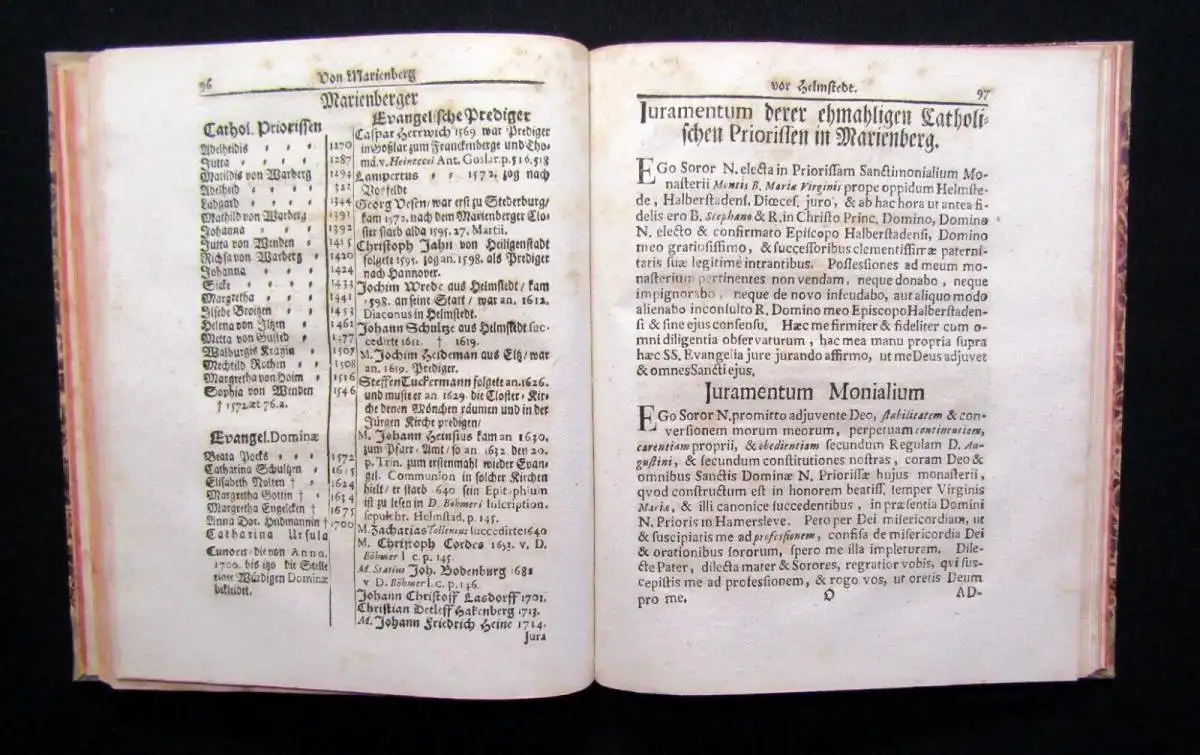 96
Von Marienberg
Marienberger
Cathol. Priorissen
Adelheidis 1270
Jutta 1287
Matildis von Warberg 1294
Adelheid 322
Ludgard 1344
Mathild von Warberg 1391
Johanna 1392
Jutta von Wenden 1415
Richsa von Warberg 1420
Johanna 1424
Sicke 1433
Margretha 1441
Ilsebe Broizen 1453
Helena von Iltzen 1462
Metta von Gusted 1477
Walburgis Kragin 1507
Mechtild Rothen 1508
Margretha von Hoim 1516
Sophia von Wenden 1546
† 1572. æt 76. a.
Evangel. Dominæ
Beata Pocks 1572
Catharina Schultzen 1615
Elisabeth Nolten † 1624
Margretha Gottin † 1634
Margretha Engelcken † 1675
Anna Dor. Hedmannin † 1700
Catharina Ursula
Cunoen die von Anno.
1700. bis 1720 die Stelle
einer Würdigen Dominæ
bekleidet.
Evangelische Prediger
Caspar Herrwich 1569. war Prediger
in Goßlar zum Franckenberge und Tho-
mä. v. Heineccii Ant. Goslar. p. 516. 518
Lampertus 1572. zog nach
Vosfelde
Georg Oesen/ war erst zu Stederburg/
kam 1572. nach dem Marienberger Clo-
ster starb alda 1595. 27. Martii.
Christoph Jahn von Heiligenstadt
folgete 1595. zog an. 1598. als Prediger
nach Hannover.
Jochim Wrede aus Helmstedt/ kam
1598. an seine Statt/ war an. 1612.
Diaconus in Helmstedt.
Johann Schultze aus Helmstedt suc-
cedirte 1612. † 1619.
M. Jochim Heideman aus Eltz/ war
an. 1619. Prediger.
Steffen Tuckermann folgete an. 1626.
und muste er an 1629. die Closter-Kir-
che denen Mönchen räumen und in der
Jürgen Kirche predigen/
M. Johann Heinsius kam an 1630.
zum Pfarr-Amt/ so an 1632 den 20.
p. Trin. zum erstenmahl wieder Evan-
gel. Communion in solcher Kirchen
hielt/ er starb 640 sein Epitaphium
ist zu lesen in D. Böhmeri Inscription.
sepulchr. Helmstad. p. 145.
M. Zacharias Tollenius succedirte 1640
M. Christoph Cordes 1653. v. D.
Böhmer l c. p. 145.
M. Statius Joh. Bodenburg 1682
v D. Böhmer l. c. p. 146.
Johann Christoff Lasdorff 1701.
Christian Detleff Hakenberg 1713.
M. Johann Friedrich Heine 1714.
Jura
vor Helmstedt.
97
Juramentum derer ehmahligen Catholi-
schen Priorissen in Marienberg.
EGo Soror N. electa in Priorissam Sanctimonialium Mo-
nasterii Montis B. Mariæ Virginis prope oppidum Helmste-
de, Halberstadens. Diœces. juro, & ab hac hora ut antea fi-
delis ero B. Stephano & R. in Christo Princ. Domino, Domino
N. electo & confirmato Episcopo Halberstadensi, Domino
meo gratiosissimo, & successoribus clementissimæ paterni-
tatis suæ legitime intrantibus. Possessiones ad meum mo-
nasterium pertinentes non vendam, neque donabo, neque
impignorabo, neque de novo infeudabo, aut aliquo modo
alienabo inconsulto R. Domino meo Episcopo Halberstaden-
si & sine ejus consensu. Hæc me firmiter & fideliter cum o-
mni diligentia observaturum, hac mea manu propria supra
hæc SS. Evangelia jure jurando affirmo, ut me Deus adjuvet
& omnes Sancti ejus.
Juramentum Monialium
EGo Soror N. promitto adjuvente Deo, stabilitatem & con-
versionem morum meorum, perpetuam continentiam,
carentiam proprii, & obedientiam secundum Regulam D. Au-
gustini, & secundum constitutiones nostras, coram Deo &
omnibus Sanctis Dominæ N. Priorissæ hujus monasterii,
qvod constructum est in honorem beatiss. semper Virginis
Mariæ, & illi canonice succedentibus, in præsentia Domini
N. Prioris in Hamersleve. Peto per Dei misericordiam, ut
& suscipiatis me ad professionem, & confisa de misericordia Dei
& orationibus sororum, spero me illa impleturam. Dile-
cte Pater, dilecta mater & Sorores, regratior vobis, qvi sus-
cepistis me ad professionem, & rogo vos, ut oretis Deum
pro me.
O
AD-